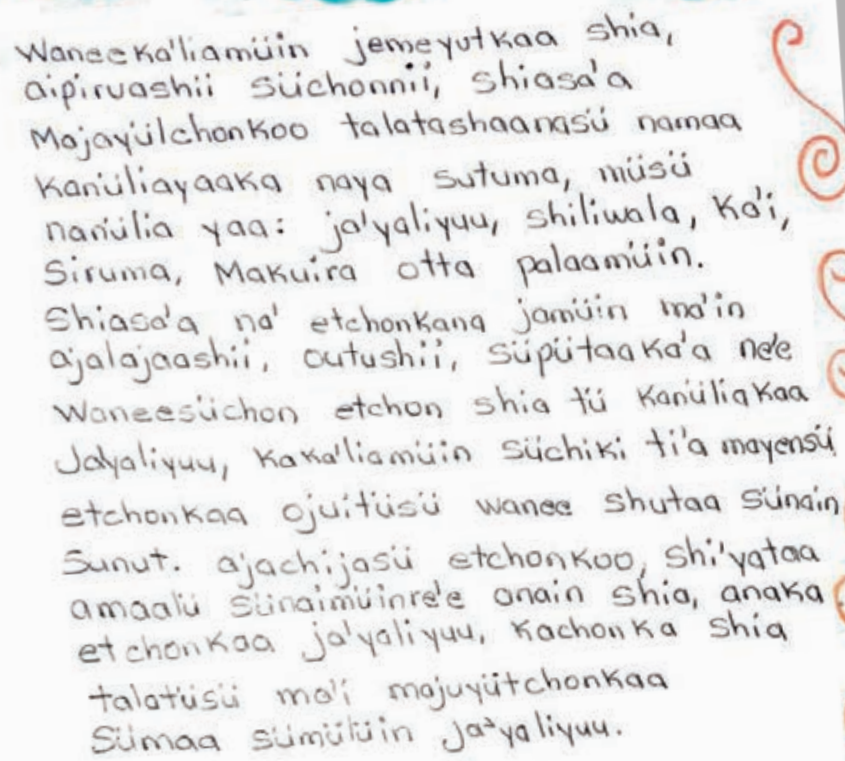 Waneeka'liamüin jemeyutkaa shia,
aipiruashii süchonnii, shiasa'a
Majayülchonkoo talatashaanasü namaa
kanüliayaaka naya sutuma, müsü
nanülia yaa: ja'yaliyuu, shiliwala, Ka'i,
Siruma, Makuira otta palaamüin.
Shiasa'a na' etchonkana jamüin ma'in
ajalajaashii, outushii, süpütaaka'a ne'e
waneesüchon etchon shia tü kanüliakaa
Ja'yaliyuu, kaka'liamüin süchiki ti'a mayensü
etchonkaa ojuitüsü wanee shutaa sünain
Sunut. ajachijasü etchonkoo, shi'yataa
amaalü sünaimüinre'e anain shia, anaka
etchonkaa ja'yaliyuu, kachonka shia
talatüsü ma'i majuyütchonkaa
Sümaa sümülüin ja'yaliyuu.